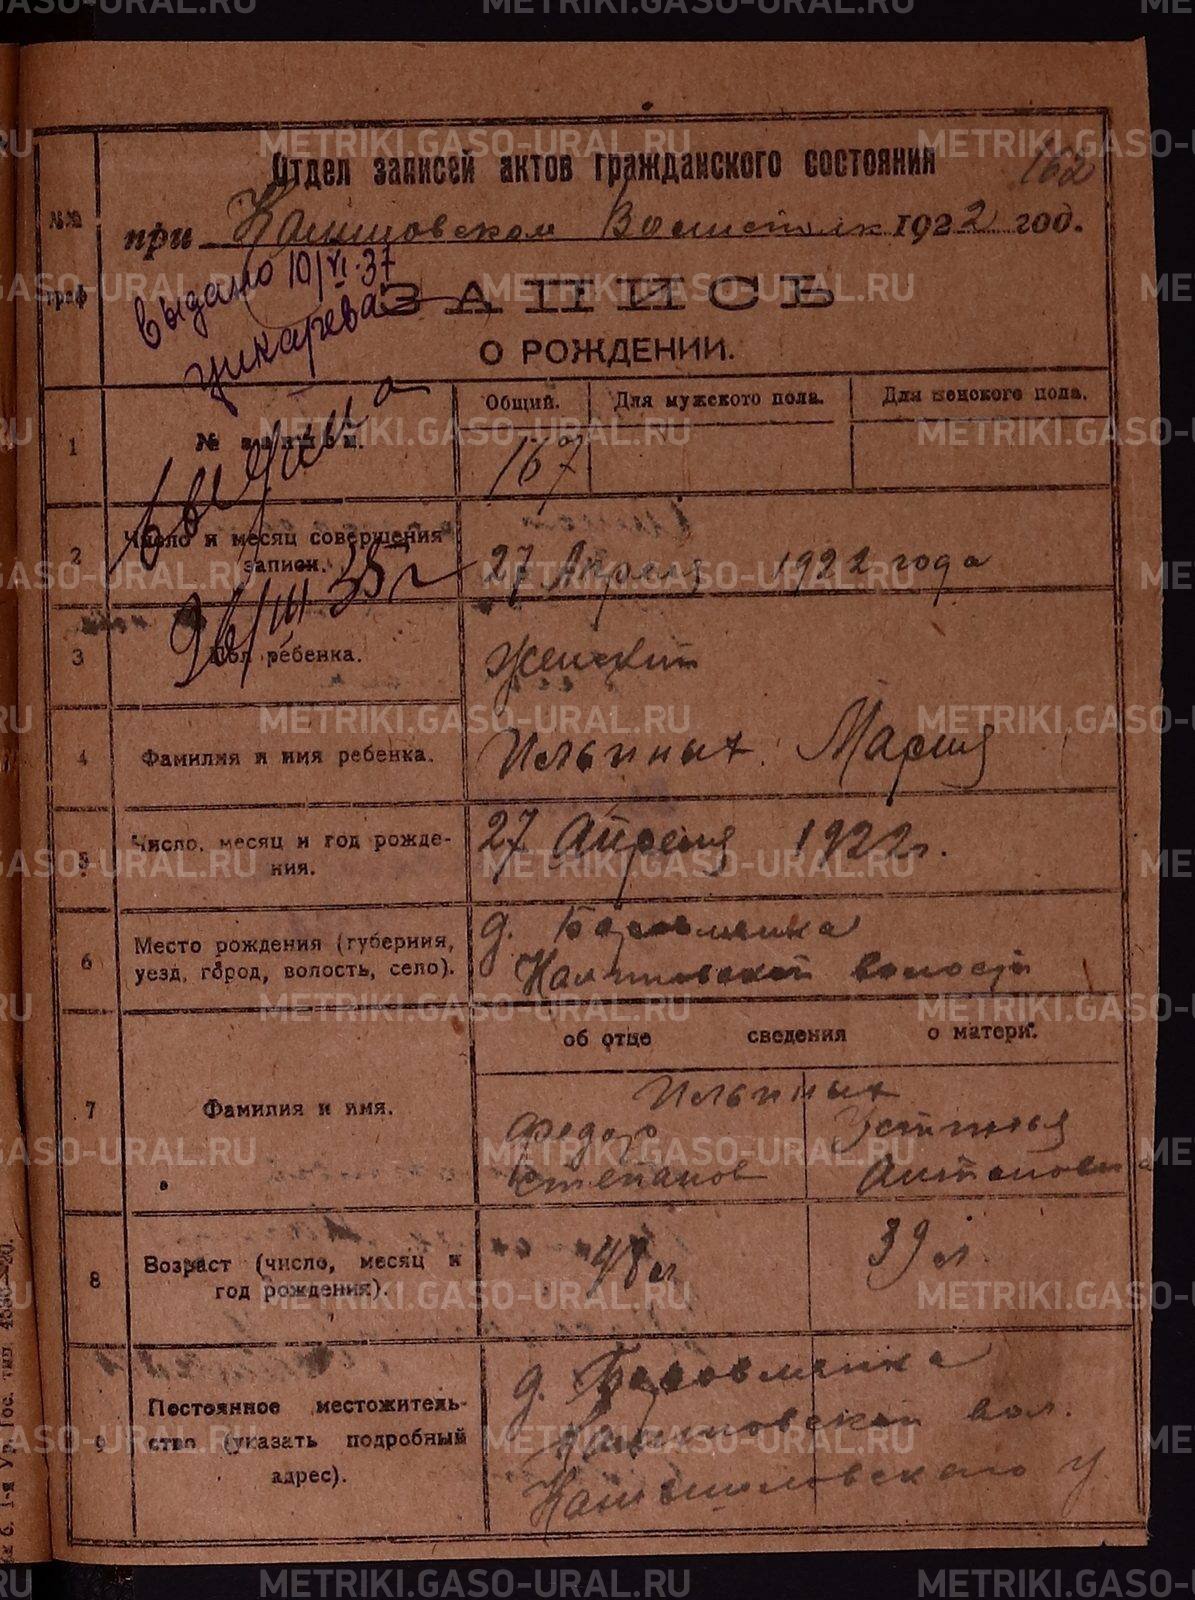 Отдел записей актов гражданского состояния
№№ граф
при Волисполк 1922 год.
выдано 10/VI-37
ЗАПИСЬ
О РОЖДЕНИИ.
Общий. Для мужского пола. Для женского пола.
1 № записи. 167
2 Число и месяц совершения записи. 27 Апреля 1922 года
26/III 35 г
3 Пол ребенка. Женский
4 Фамилия и имя ребенка. Ильиных Мария
5 Число, месяц и год рожде-
ния. 27 Апреля 1922 г.
6 Место рождения (губерния,
уезд, город, волость, село). д.
волости
об отце сведения о матери.
7 Фамилия и имя. Ильиных
Федор Устинья
Степанов Антоновна
8 Возраст (число, месяц и
год рождения). 48 л 39 л.
9 Постоянное местожитель-
ство (указать подробный
адрес). д.
вол.
у
METRIKI.GASO-URAL.RU